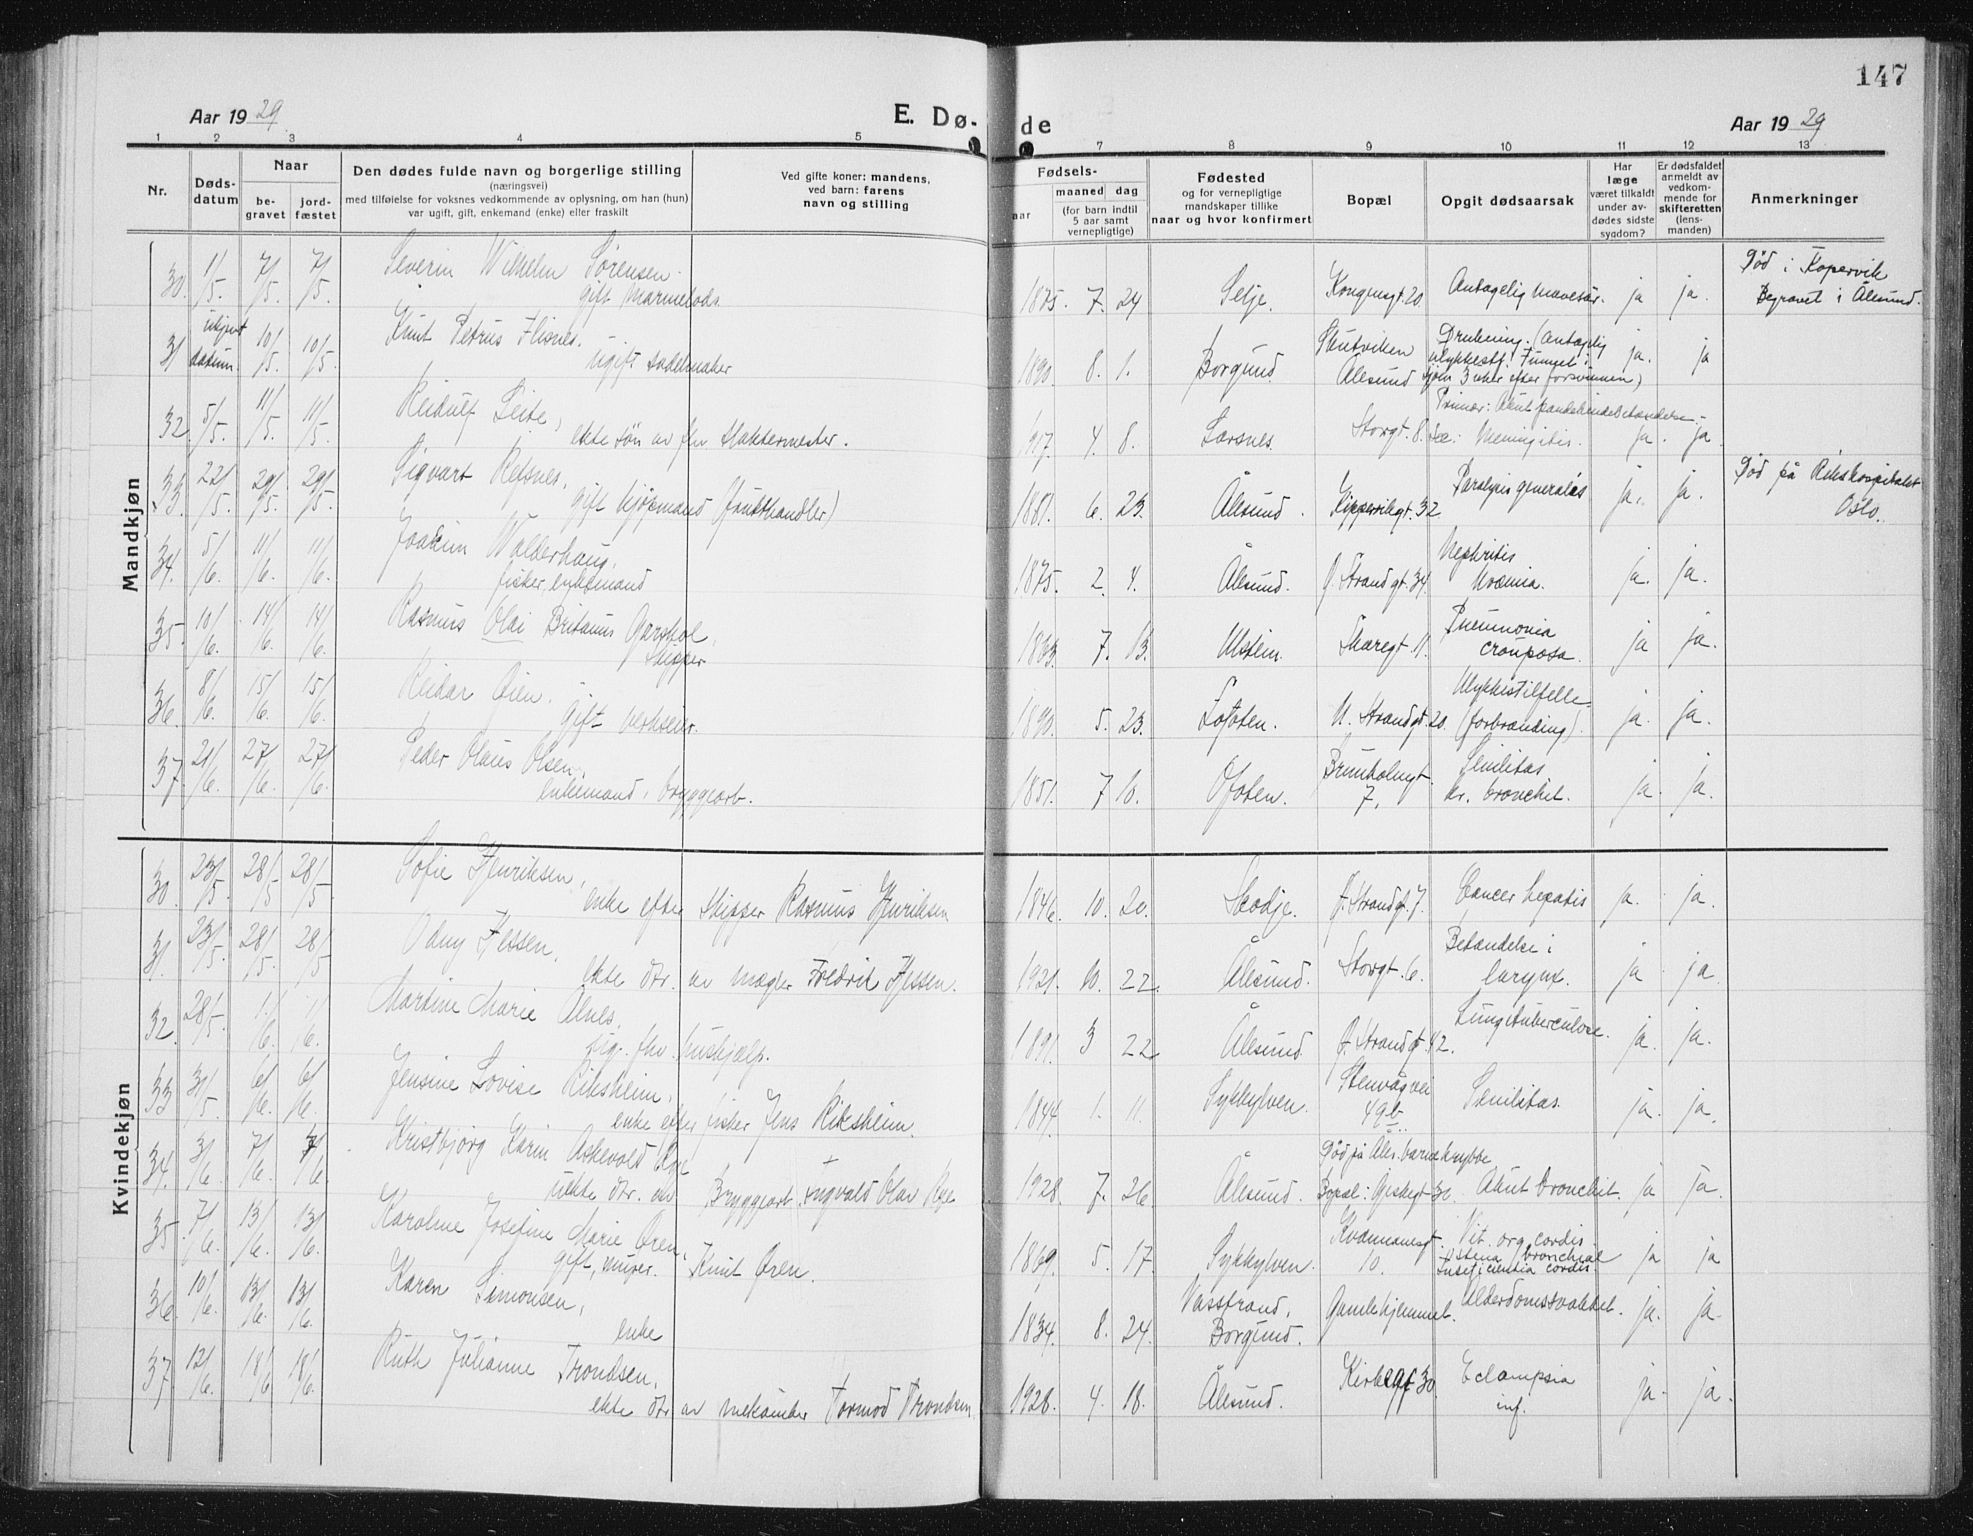 147
Aar 1929
E. Dø-
de
Aar 1929
1 2 3 4 5 7 8 9 10 11 12 13
Nr.
Døds-
datum
Naar
be-
gravet
jord-
fæstet
Den dødes fulde navn og borgerlige stilling
(næringsvei)
med tilføielse for voksnes vedkommende av oplysning, om han (hun)
var ugift, gift, enkemand (enke) eller fraskilt
Ved gifte koner: mandens,
ved barn: farens
navn og stilling
Fødsels-
aar
maaned
dag
(for barn indtil
5 aar samt
vernepligtige)
Fødested
og for vernepligtige
mandskaper tillike
naar og hvor konfirmert
Bopæl
Opgit dødsaarsak
Har
læge
været tilkaldt
under av-
dødes sidste
sygdom?
Er dødsfaldet
anmeldt av
vedkom-
mende for
skifteretten
(lens-
manden)
Anmerkninger
Mandkjøn
30. 1/5. 7/5. 7/5. Severin Wilhelm Sørensen.
gift 1875. 7. 24 Selje. Kongensgt. 20 Antagelig mavesår. ja ja. Død i Kopervik
Begravet i Ålesund.
31 ukjent
datum. 10/5. 10/5. Knut Petrus Flisnes.
ugift sadelmaker 1890. 8. 1. Borgund. Skutviken
Ålesund Drukning. (Antagelig
ulykkestf. Funnet i
sjøen 3 uker efter forsvinnen) ja. ja
32 5/5. 11/5. 11/5. Reidulf Leite,
ekte søn av fhv. slaktermester. 1917. 4. 8. Larsnes. Storgt. 8. Primær: Akut pandehulebetændelse
Sec: Meningitis. ja. ja.
33. 22/5. 29/5. 29/5. Sigvart Refsnes.
gift kjøpmand (frukthandler) 1881. 6. 23. Ålesund. Kippervikgt. 32 Paralysis generales ja. ja. Død på Rikshospitalet
Oslo.
34. 5/6. 11/6. 11/6. Joakim Walderhaug.
fisker, enkemand 1875. 2. 4. Ålesund. Ø. Strandgt. 34. Nephritis
Uræmia. ja. ja.
35. 10/6. 14/6. 14/6. Rasmus Olai Britanus Garshol,
Skipper 1863. 7. 13. Ulstein. Skaregt. 11. Pneumonia
crouposa. ja ja.
36. 8/6. 15/6. 15/6. Reidar Øien.
gift verkseier. 1893. 5. 23. Lofoten. N. Strandgt. 20. Ulykkestilfelle
(forbrænding). ja. ja.
37. 21/6. 27/6. 27/6. Peder Olaus Olsen,
enkemand, bryggearb. 1851. 7 10. Ofoten. Brunholmgt.
7. Senilitas
kr. bronchit. ja. ja.
Kvindekjøn
30. 23/5. 28/5. 28/5 Sofie Henriksen,
enke efter skipper Rasmus Henriksen 1846. 10. 20. Skodje. Ø. Strandgt. 7. Cancer hepatis ja. ja.
31. 23/5. 28/5. 28/5 Odny Jessen,
ekte dtr. av mægler Fredrik Jessen. 1921. 10. 22. Ålesund. Storgt. 6. Betændelse i
larynx. ja ja.
32. 28/5. 1/6. 1/6. Martine Marie Alnes.
fhv. hushjælp. 1891. 3 22 Ålesund. Ø. Strandgt. 42. Lungetuberculose. ja. ja.
33 31/5. 6/6. 6/6. Jensine Lovise Riksheim,
enke efter fisker Jens Riksheim. 1844. 1. 11. Sykkylven. Stenvågvei
49b Senilitas. ja. ja.
34. 3/6. 7/6. 7/6. Kristbjørg Karin Askevold Rye
uekte dtr. av Bryggearb. Ingvald Olav Rye 1928. 7. 26. Ålesund. Død på Åles. barnekrybbe
Bopæl: Giskegt 30. Akut bronchit. ja ja.
35 7/6. 13/6. 13/6. Karoline Josefine Marie Øren,
gift, murer. Knut Øren. 1869. 5. 17. Sykkylven. Kvennanesgt.
10. Vit. org. cordis
Astma bronchial
Insuficientia cordis. ja ja
36. 10/6. 13/6. 13/6. Karen Simonsen,
enke 1834. 8. 24. Vasstrand,
Borgund. Gamlehjemmet. Alderdomssvakhet. ja. ja.
37. 12/6. 18/6 18/6. Ruth Julianne Trondsen,
ekte dtr av mekaniker Tormod Trondsen 1928. 4. 18. Ålesund. Kirkegt 30 Eclampsia
inf. ja. ja.